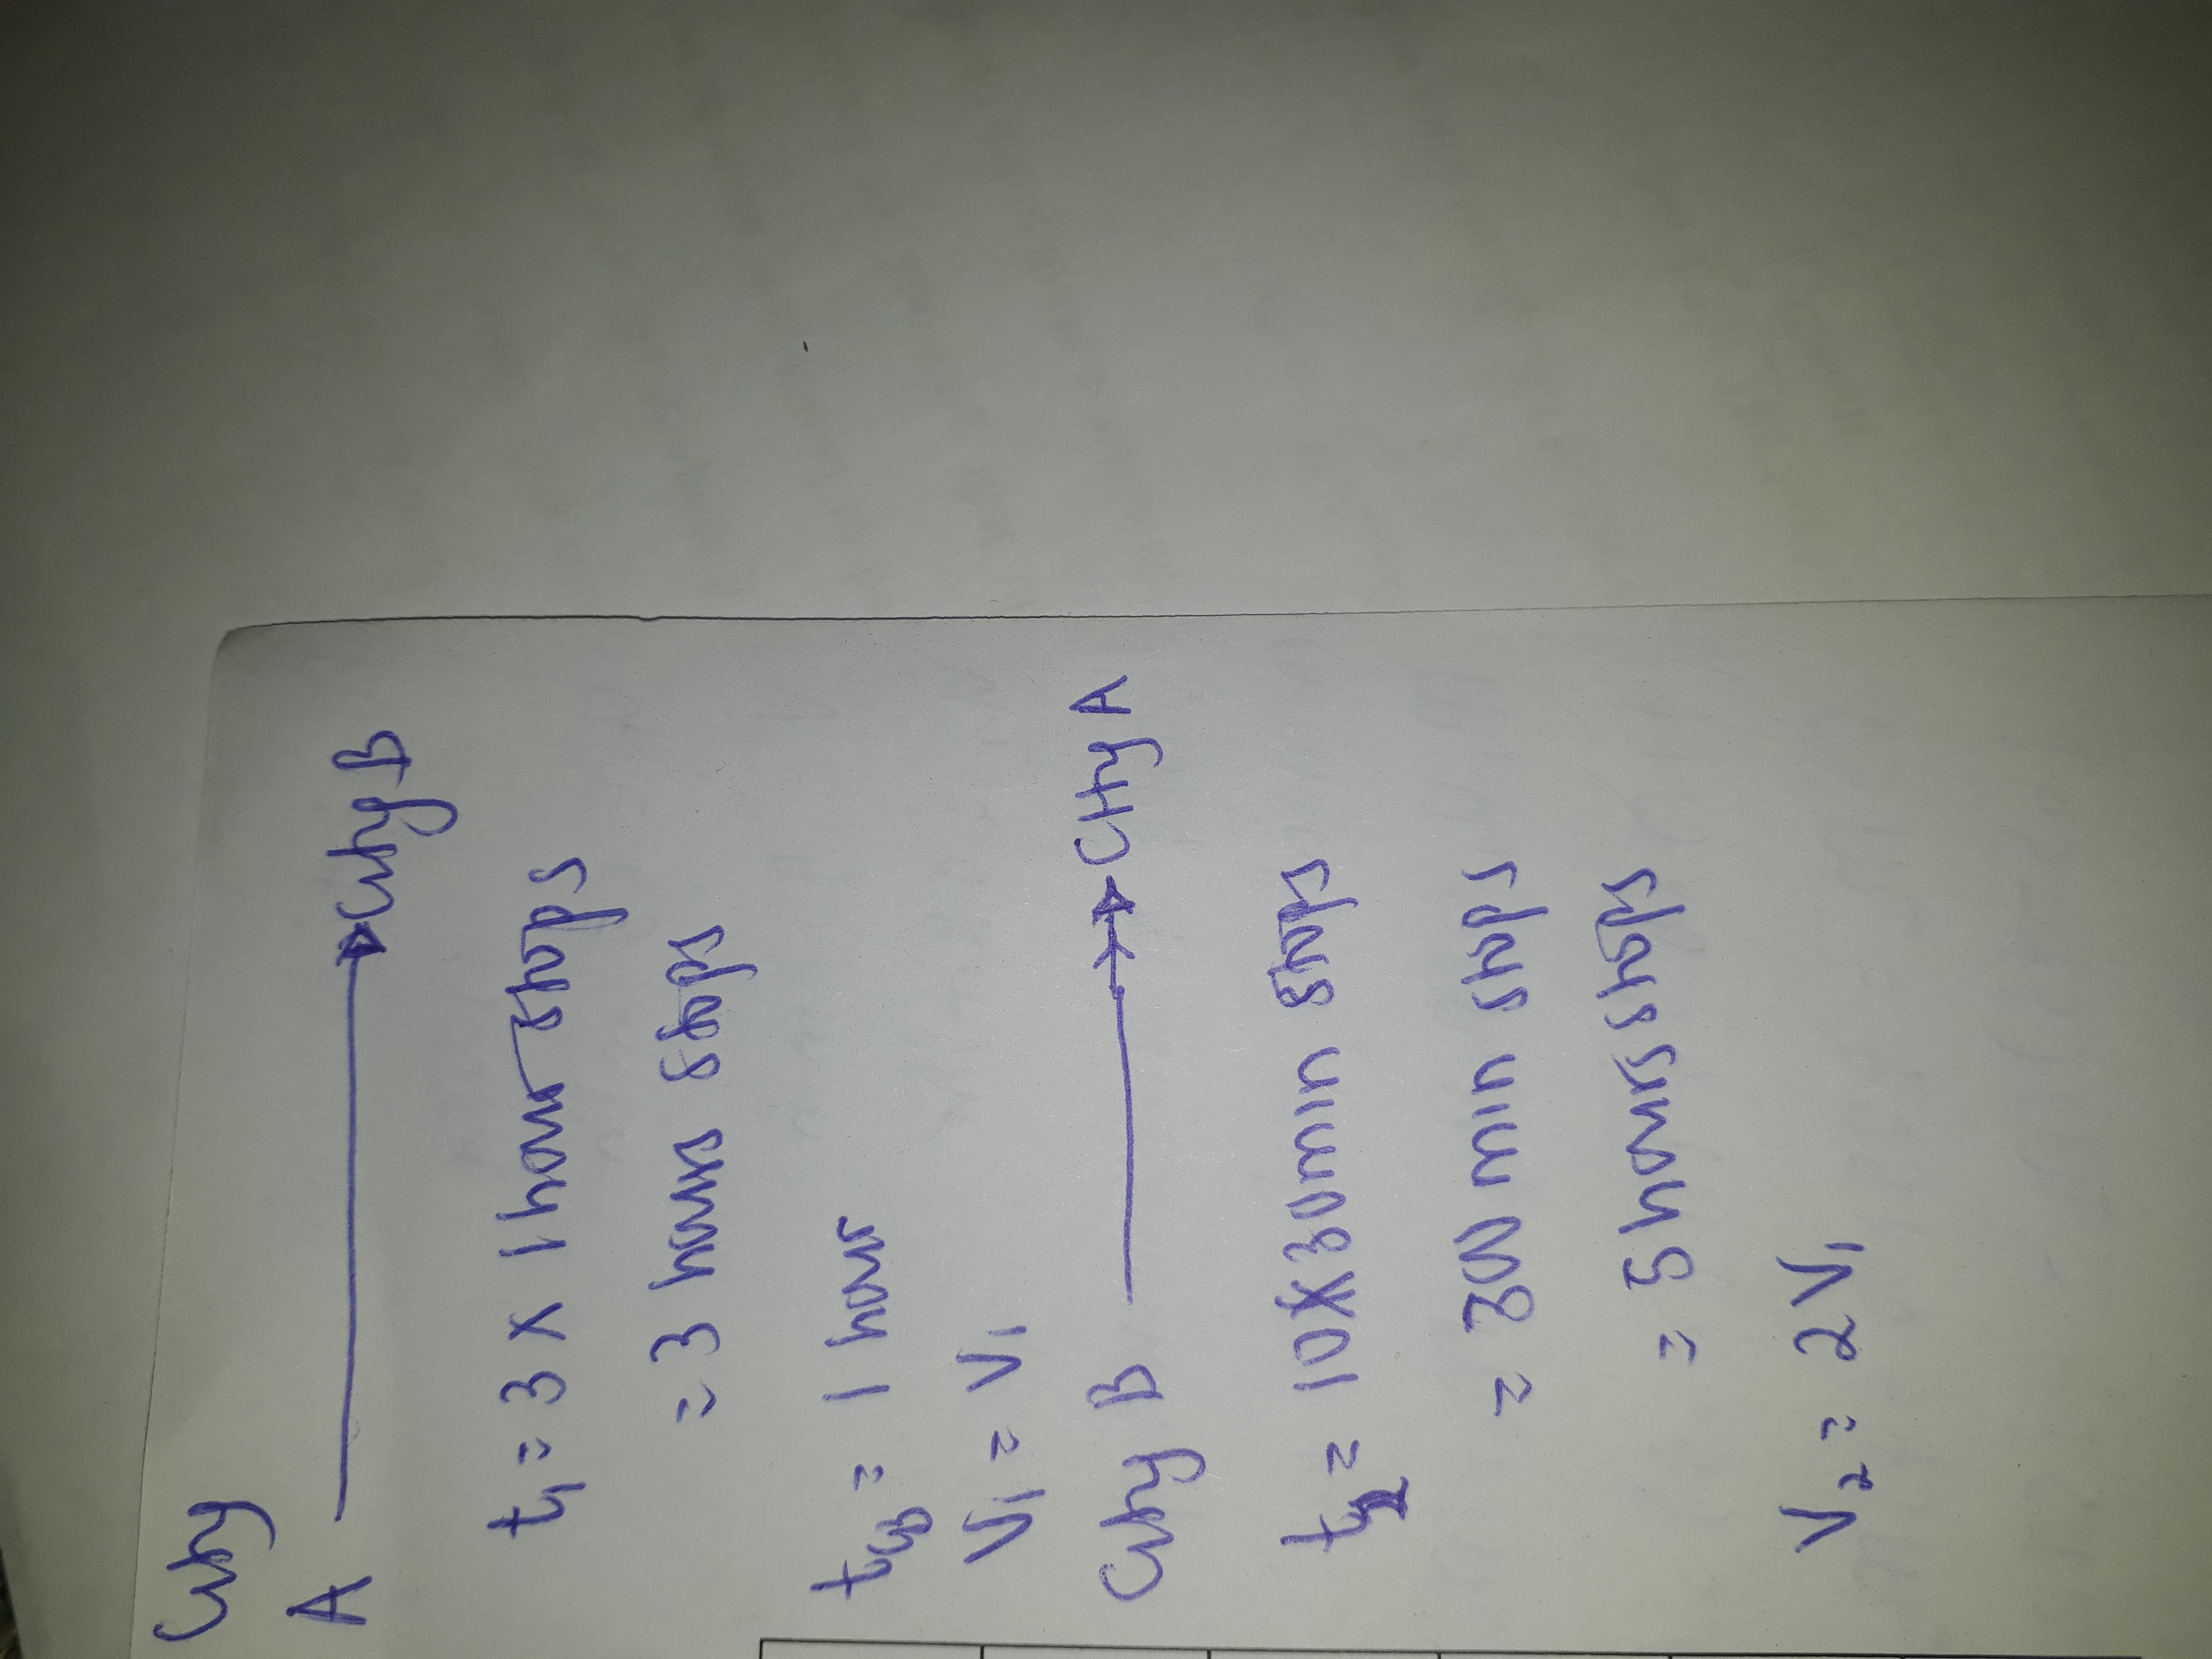 City
A → City B
t1 = 3 x 1 hour stops
= 3 hours stops
tw = 1 hour
V1 = V1
City B → City A
t2 = 10x30min stops
= 300 min stops
= 5 hours stops
V2 = 2V1